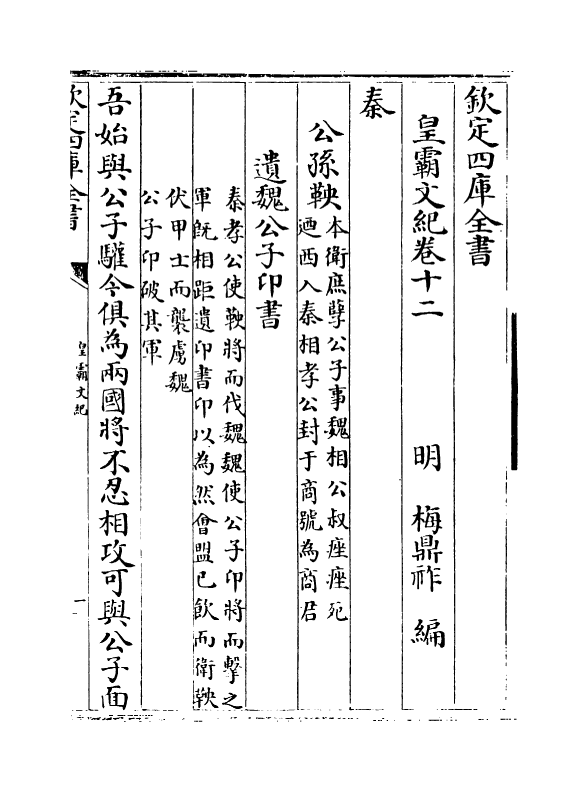 欽定四庫全書
皇霸文紀卷十二　明　梅鼎祚　編
秦
公孫鞅本衛庶孽公子事魏相公叔痤痤死
迺西入秦相孝公封于商號為商君
遺魏公子卬書
秦孝公使鞅將而伐魏魏使公子卬將而擊之
軍既相距遺卬書卬以為然會盟已飲而衛鞅
伏甲士而襲虜魏
公子卬破其軍
吾始與公子驩今俱為兩國將不忍相攻可與公子面
欽定四庫全書
皇霸文紀
一